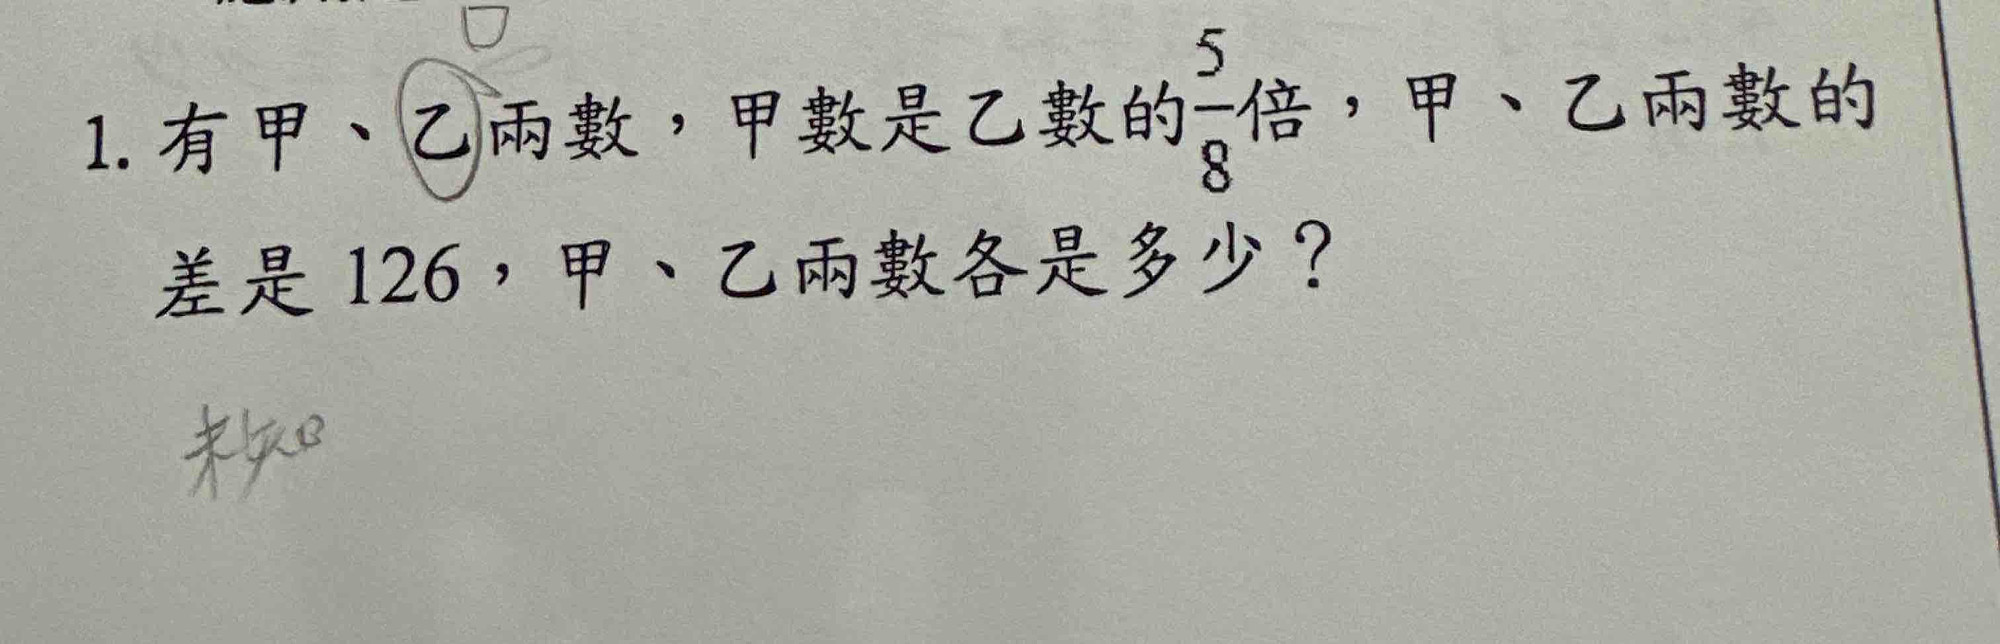 1. 有甲、乙兩數，甲數是乙數的5/8倍，甲、乙兩數的
差是 126，甲、乙兩數各是多少？
未知